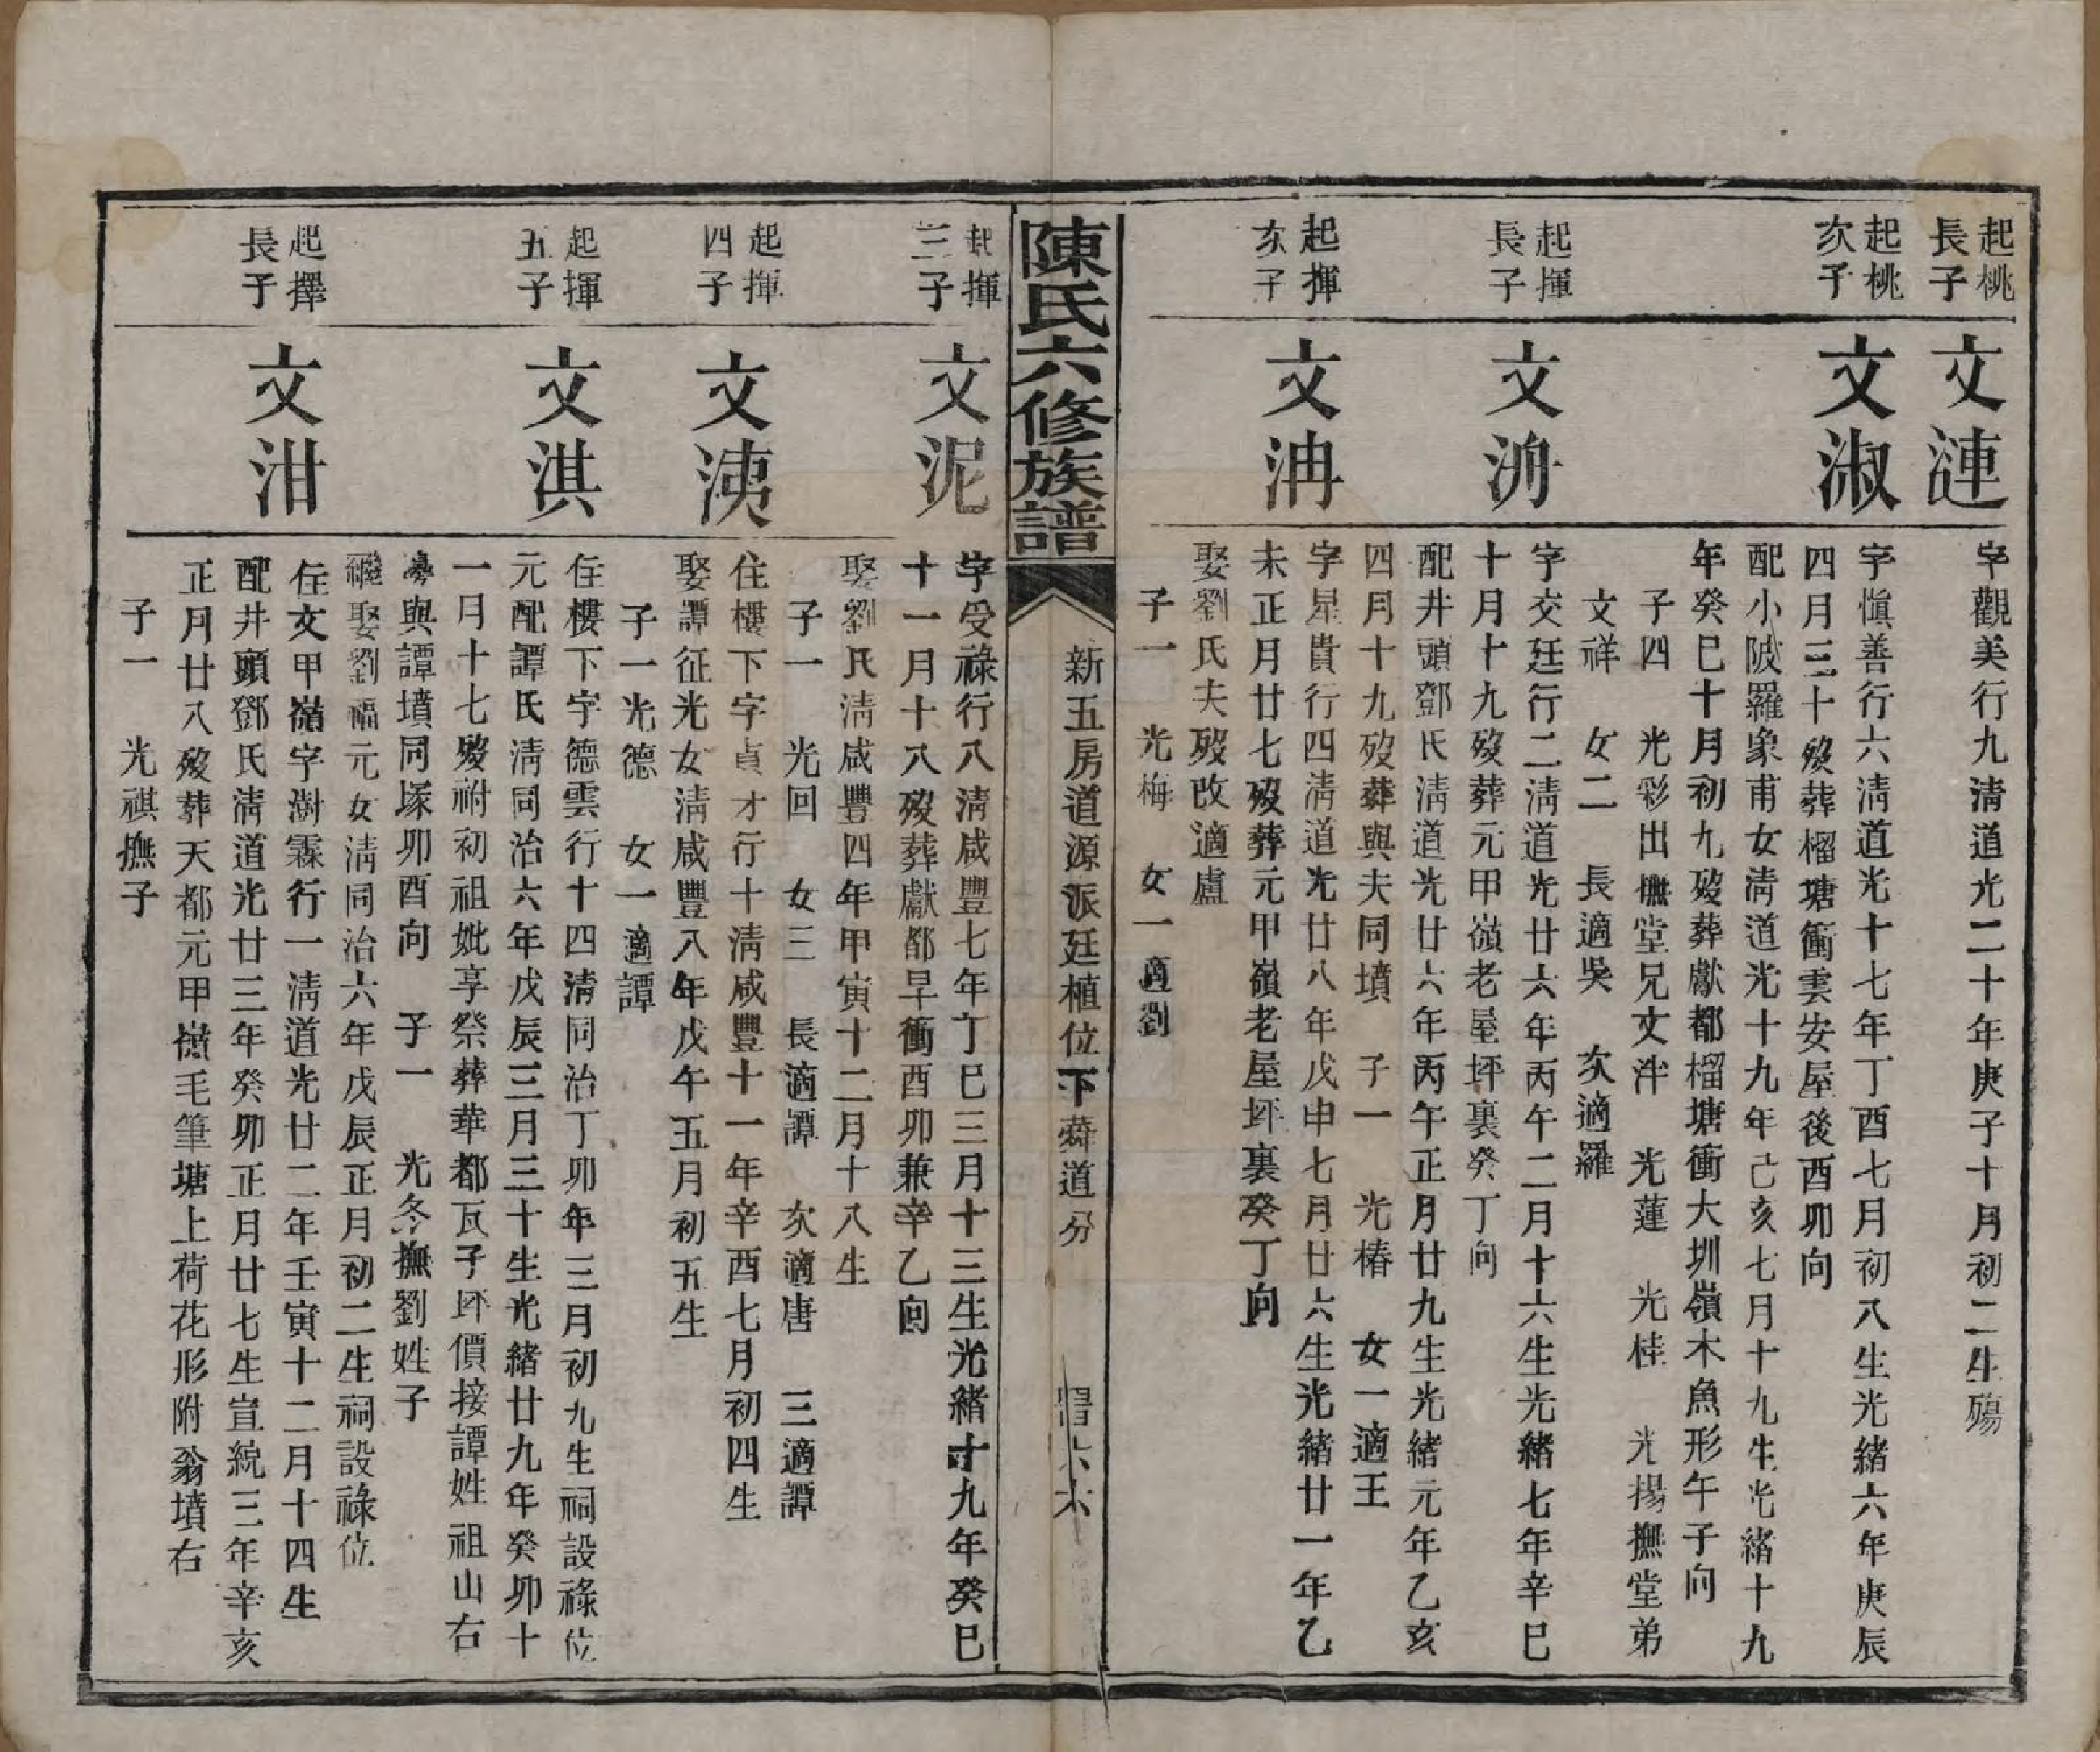 起桃
長子
文漣
字觀美行九淸道光二十年庚子十月初二生殤
起桃
次子
文淑
字愼善行六淸道光十七年丁酉七月初八生光緒六年庚辰
四月三十歿葬榴塘衝雲安屋後酉卯向
配小陂羅象甫女淸道光十九年己亥七月十九生光緒十九
年癸巳十月初九歿葬獻都榴塘衝大圳嶺木魚形午子向
子四 光彩出撫堂兄文泮 光蓮 光桂 光揚撫堂弟
文祥 女二 長適吳 次適羅
起揮
長子
文洀
字交廷行二淸道光廿六年丙午二月十六生光緒七年辛巳
十月十九歿葬元甲嶺老屋坪裏癸丁向
配井頭鄧氏淸道光廿六年丙午正月廿九生光緒元年乙亥
四月十九歿葬與夫同墳 子一 光椿 女一適王
起揮
次子
文洅
字星貴行四淸道光廿八年戊申七月廿六生光緒廿一年乙
未正月廿七歿葬元甲嶺老屋坪裏癸丁向
娶劉氏夫歿改適盧
子一 光梅 女一適劉
陳氏六修族譜
新五房道源派廷植位下舜道分
六六
起揮
三子
文泥
字受祿行八淸咸豐七年丁巳三月十三生光緒十九年癸巳
十一月十八歿葬獻都早衝酉卯兼辛乙向
娶劉氏淸咸豐四年甲寅十二月十八生
子一 光回 女三 長適譚 次適唐 三適譚
起揮
四子
文洟
住樓下字貞才行十淸咸豐十一年辛酉七月初四生
娶譚征光女淸咸豐八年戊午五月初五生
子一光德 女一適譚
起揮
五子
文淇
住樓下字德雲行十四淸同治丁卯年三月初九生祠設祿位
元配譚氏淸同治六年戊辰三月三十生光緒廿九年癸卯十
一月十七歿祔初祖妣享祭葬華都瓦子坪價接譚姓祖山右
㫄與譚墳同塚卯酉向 子一 光冬撫劉姓子
繼娶劉福元女淸同治六年戊辰正月初二生祠設祿位
起擇
長子
文泔
住文甲嶺字澍霖行一淸道光廿二年壬寅十二月十四生
配井頭鄧氏淸道光廿三年癸卯正月廿七生宣統三年辛亥
正月廿八歿葬天都元甲嶺毛筆塘上荷花形附翁墳右
子一 光祺撫子